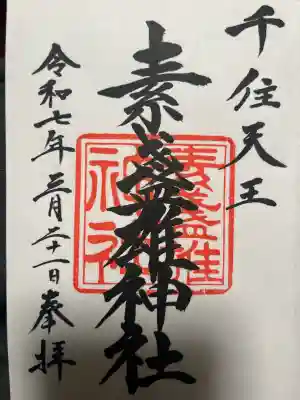 千住天王
素盞雄神社
令和七年三月二十一日奉拝